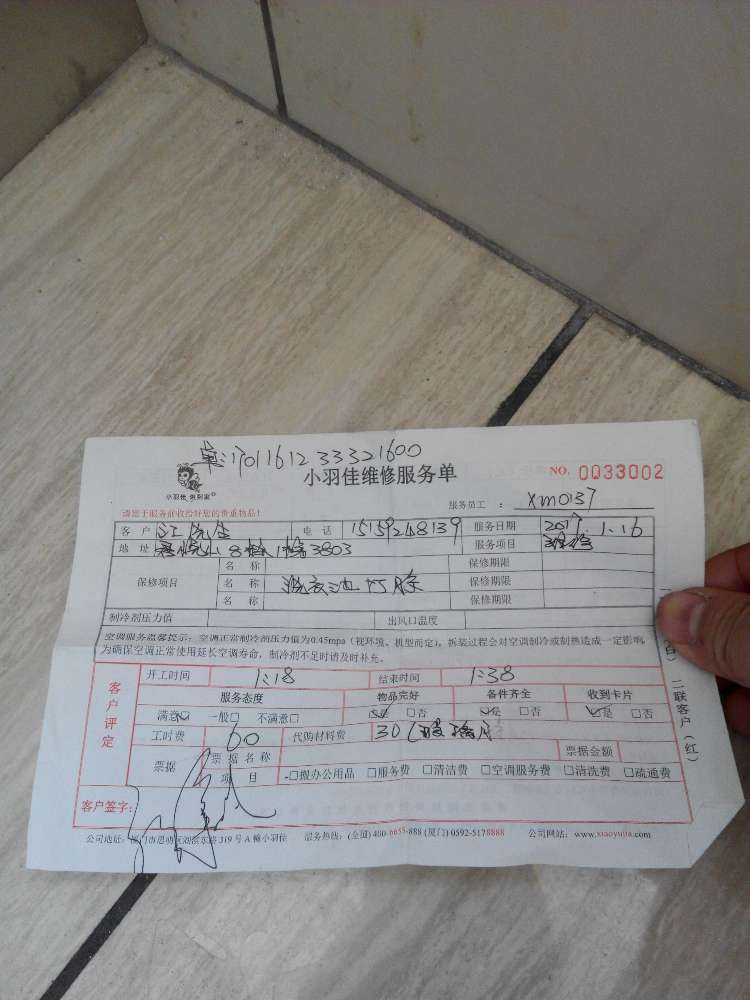 单:17011612 33321600
小羽佳维修服务单 NO. 0033002
小羽佳 来到家
服务员工 : XM0137
请您于服务前收拾好您的贵重物品!
客 户 江先生 电 话 15159248139 服务日期 2017.1.16
地 址 8 1 3803 服务项目 维修
保修项目 名 称 保修期限
名 称 洗衣池打胶 保修期限
名 称 保修期限
制冷剂压力值 出风口温度
空调服务温馨提示:空调正常制冷剂压力值为0.45mpa(视环境、机型而定),拆装过程会对空调制冷或制热造成一定影响,
为确保空调正常使用延长空调寿命,制冷剂不足时请及时补充。
客户评定
开工时间 1:18 结束时间 1:38
服务态度 物品完好 备件齐全 收到卡片
满意☑ 一般□ 不满意□ ☑是 □否 ☑是 □否 ☑是 □否
工时费 60 代购材料费 30(玻璃胶
票据 票据名称 票据金额
项 目 □搬办公用品 □服务费 □清洁费 □空调服务费 □清洗费 □疏通费
客户签字:
公司地址:厦门市思明区湖滨东路 319 号 A 幢小羽佳 服务热线:(全国) 400-6655-888 (厦门) 0592-5178888 公司网站:www.xiaoyujia.com
(白) 二联客户(红)